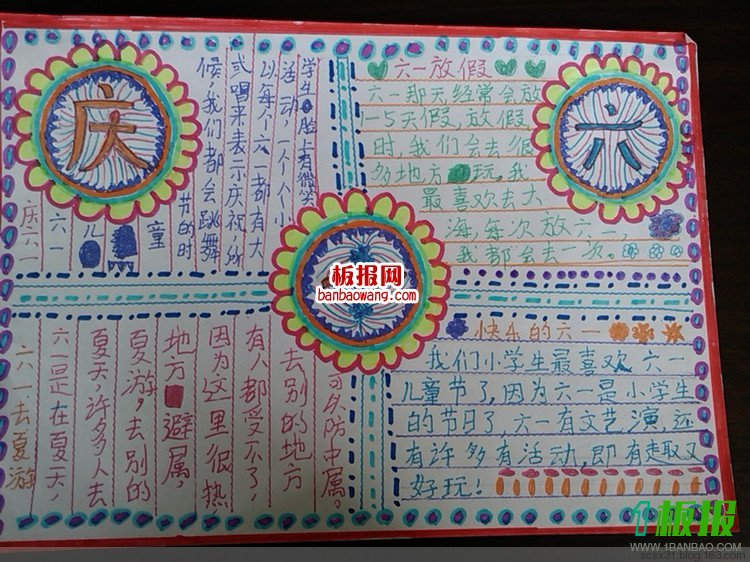 庆
庆六一
六一儿童
节的时
候,我们都会跳舞
或唱来表示庆祝,所
以每个六一都有大
活动,一个人个小
学生脸上有微笑
六一放假
六一那天经常会放
1-5天假,放假
时,我们会去很
多地方玩。我
最喜欢去大
海,每次放六一,
我都会去一次。
六
板报网
banbaowang.com
六一去夏游
六一是在夏天,
夏天,许多人去
夏游,去别的
地方避属,
因为这里很热
有人都受不了,
去别的地方
可以防中属。
快乐的六一
我们小学生最喜欢六一
儿童节了,因为六一是小学生
的节日了,六一有文艺演,还
有许多有活动,即有趣又
好玩!
板报
WWW.1BANBAO.COM
scsx31.blog.163.com